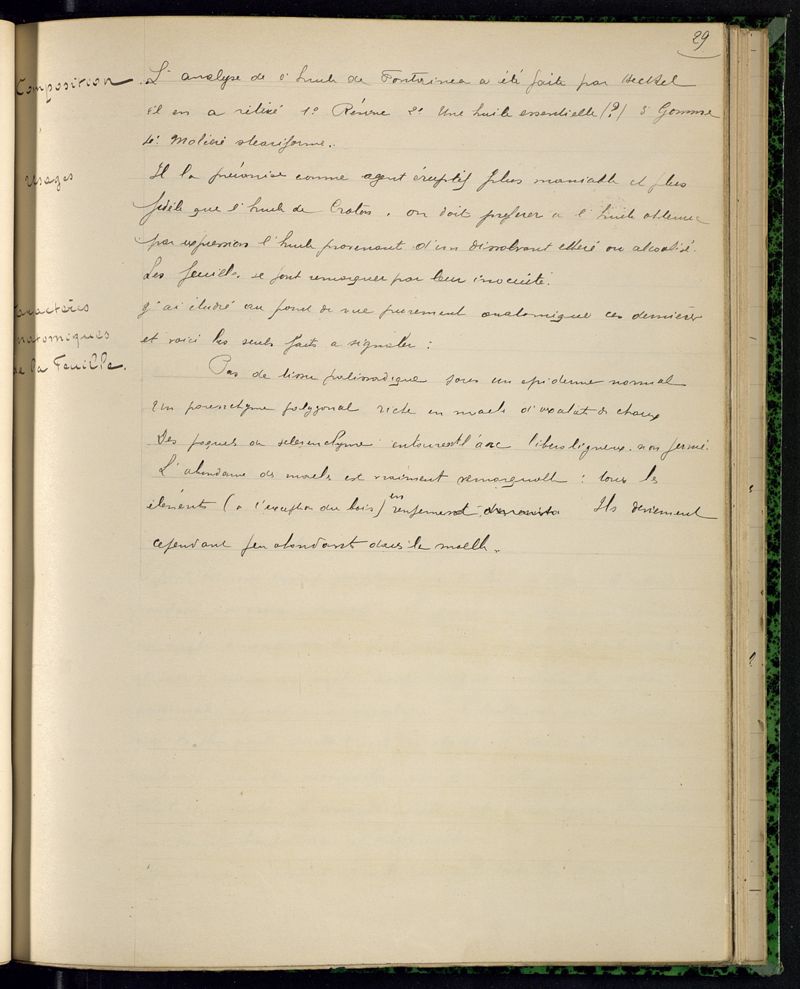 29
Composition
L'analyse de l'huile de Fontainea a été faite par Heckel
il en a retiré 1º Résine 2º Une huile essentielle (?) 3º Gomme
4º Matière stéariforme.
Usages
Il la préconise comme agent éruptif plus maniable et plus
fidèle que l'huile de Croton. on doit préférer à l'huile obtenue
par expression l'huile provenant d'un dissolvant éthéré ou alcoolisé.
Les feuilles se font remarquer par leur inocuité.
Caractères
anatomiques
de la Feuille.
J'ai étudié au point de vue purement anatomique ces dernières
et voici les seuls faits a signaler :
Pas de tissu palissadique sous un epiderme normal
Un parenchyme polygonal riche en macles d'oxalate de chaux
Des paquets de sclerenchyme entourent l'arc liberoligneux non fermé.
L'abondance des macles est vraiment remarquable : tous les
éléments (a l'exception du bois) en renferment Ils deviennent
cependant peu abondants dans la moelle.